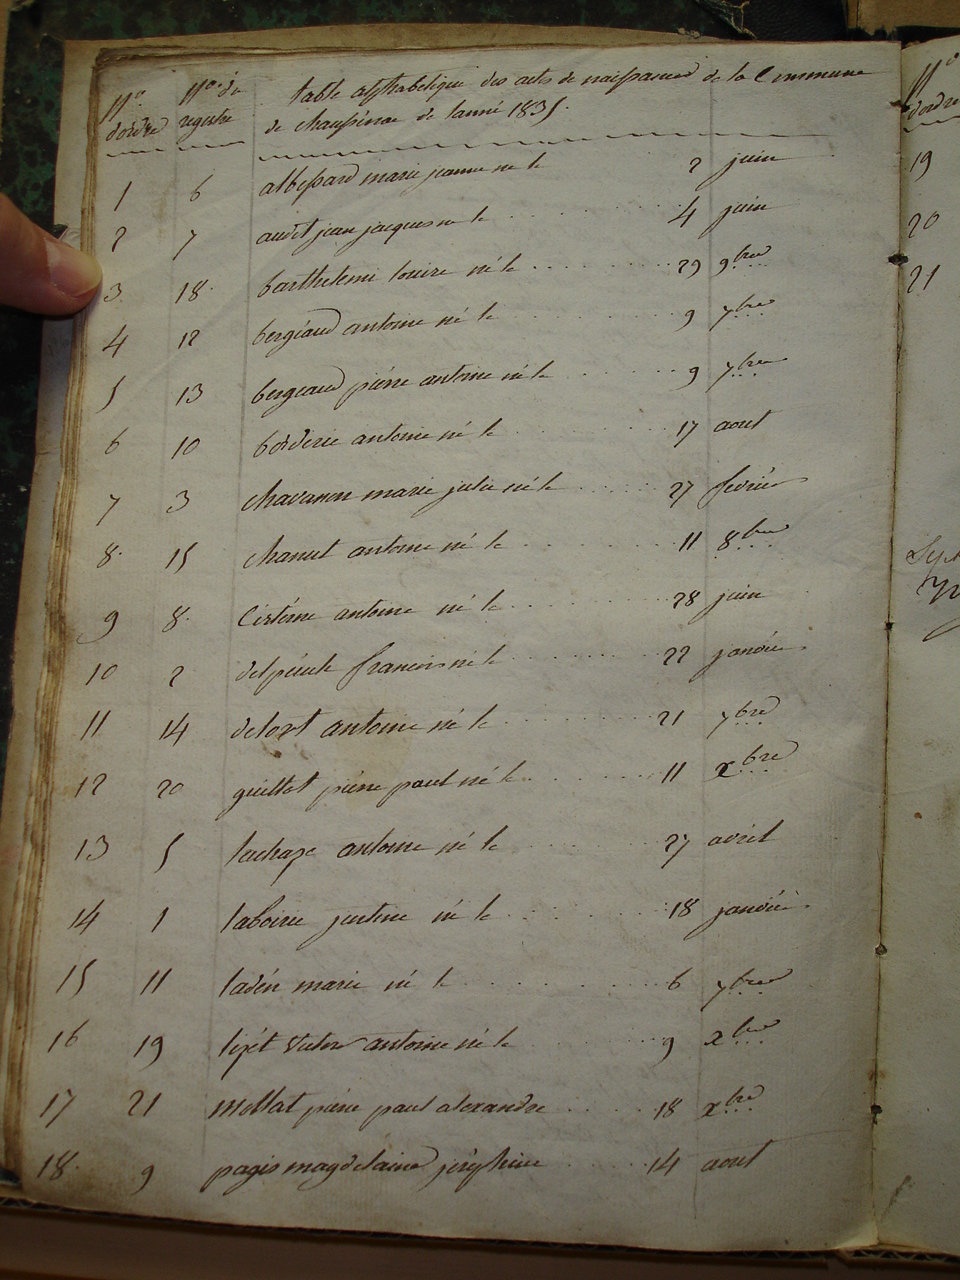 N.o N.o du table alphabetique des actes de naissance de la Commune
d'ordre registre de chaussenac de l'année 1835.
1 6 albessard marie jeanne né le 2 juin
2 7 audet jean jacques né le 4 juin
3 18 barthelemi né le 29 9bre
4 12 bergeaud antoine né le 9 7bre
5 13 bergeaud pierre antoine né le 9 7bre
6 10 borderie antoine né le 17 aout
7 3 chavanon marie julie né le 27 février
8 15 chanut antoine né le 11 8bre
9 8 antoine né le 28 juin
10 2 francois né le 22 janvier
11 14 delort antoine né le 21 7bre
12 20 guillot pierre paul né le 11 xbre
13 5 lachaze antoine né le 27 avril
14 1 laboirie justine né le 18 janvier
15 11 marie né le 6 7bre
16 19 lizet victor antoine né le 9 xbre
17 21 pierre paul alexandre 18 xbre
18 9 pagis magdelaine 14 aout
N.o
d'ordre
19
20
21